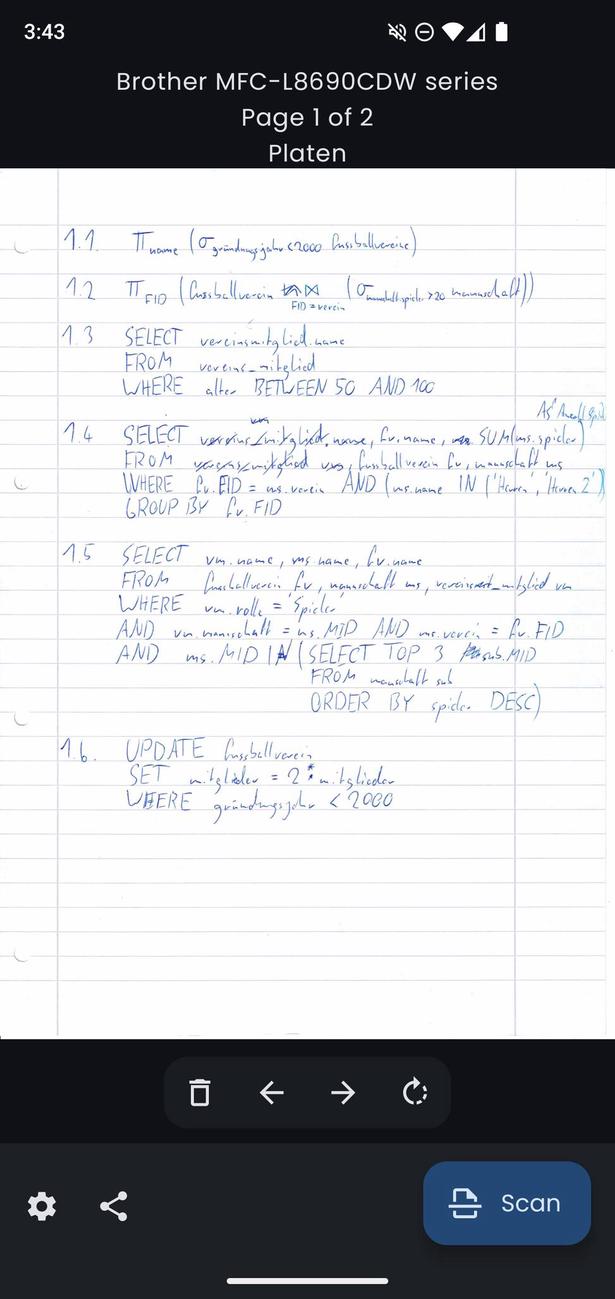 3:43
Brother MFC-L8690CDW series
Page 1 of 2
Platen
1.1. π name (σ gründungsjahr<2000 fussballvereine)
1.2 π FID (fussballverein ⋈ FID=verein (σ >20 mannschaft))
1.3 SELECT vereinsmitglied.name
FROM vereins_mitglied
WHERE alter BETWEEN 50 AND 100
1.4 SELECT fv.name, SUM(ms.spieler) AS
FROM fussballverein fv, mannschaft ms
WHERE fv.FID = ms.verein AND (ms.name IN ('Herren', 'Herren 2'))
GROUP BY fv.FID
1.5 SELECT vm.name, ms.name, fv.name
FROM fussballverein fv, mannschaft ms, vereins_mitglied vm
WHERE vm.rolle = 'Spieler'
AND vm.mannschaft = ms.MID AND ms.verein = fv.FID
AND ms.MID IN (SELECT TOP 3 sub.MID
FROM mannschaft sub
ORDER BY spieler DESC)
1.6. UPDATE fussballverein
SET mitglieder = 2 * mitglieder
WHERE gründungsjahr < 2000
Scan